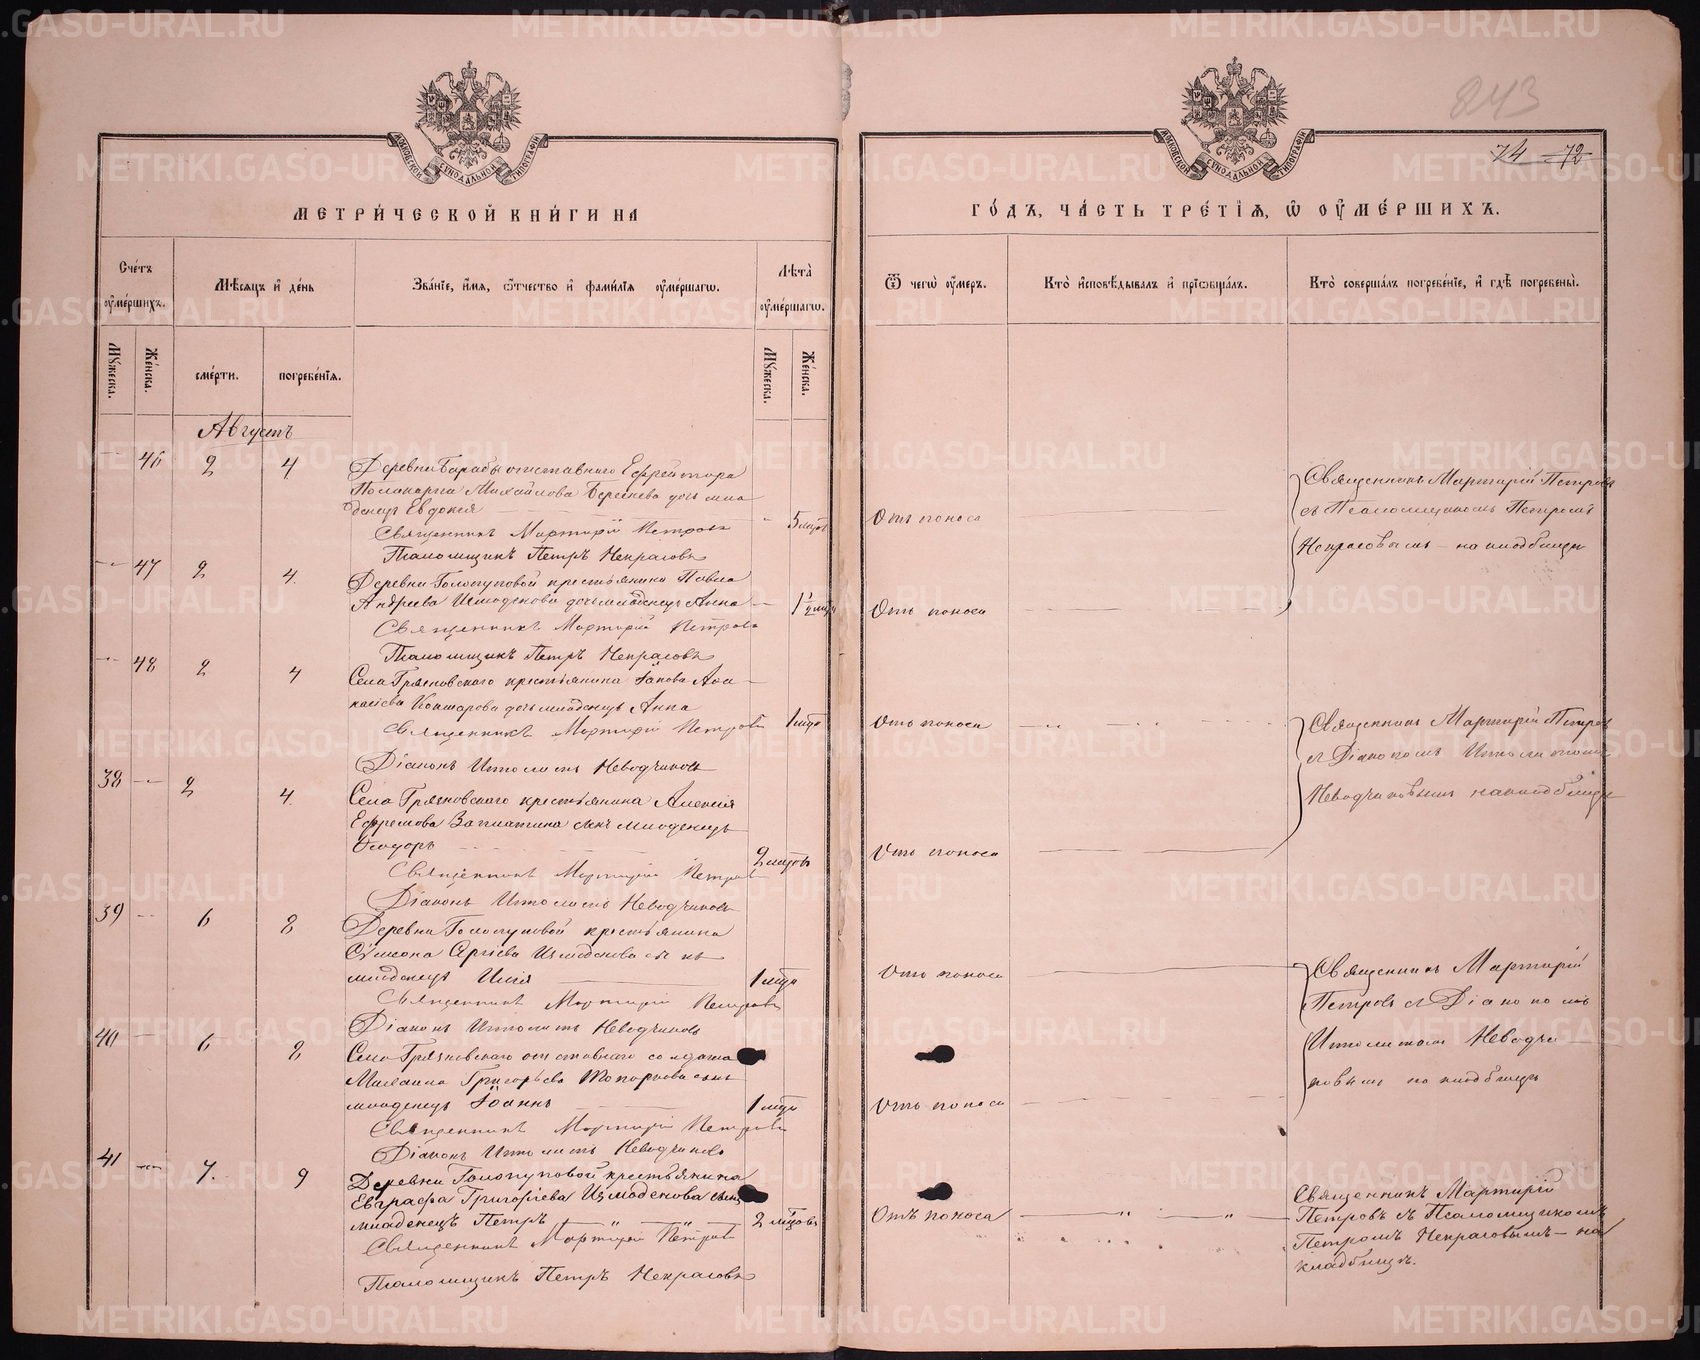 843
74 72
МЕТРИЧЕСКОЙ КНИГИ НА
ГОДЪ, ЧАСТЬ ТРЕТІЯ, Ѡ ОУМЕРШИХЪ.
Счетъ оумершихъ.
Мѣсяцъ и день
Званіе, имя, ѿчество и фамилія оумершагѡ.
Лѣта оумершагѡ.
Ѿ чегѡ оумеръ.
Кто исповѣдывалъ и пріѡбщалъ.
Кто совершалъ погребеніе, и гдѣ погребены.
Мужеска.
Женска.
смерти.
погребенія.
Мужеска.
Женска.
Августъ
46 2 4 Деревни Барабы отставного Ефрейтора
Поликарпа Михайлова Берсенева дочь мла
денецъ Евдокія
5 лѣтъ Отъ поноса
Священникъ Мартирій Петровъ
Псаломщикъ Петръ Некрасовъ
Священникъ Мартирій Петровъ
съ Псаломщикомъ Петромъ
Некрасовымъ на кладбищѣ
47 2 4. Деревни Гологузовой крестьянина Павла
Андреева Измоденова дочь младенецъ Анна
1 1/2 Отъ поноса
Священникъ Мартирій Петровъ
Псаломщикъ Петръ Некрасовъ
48 2 4 Села Грязновского крестьянина Іакова
дочь младенецъ Анна
1 Отъ поноса
Священникъ Мартирій Петровъ
Діаконъ Ипполитъ Неводчиковъ
Священникъ Мартирій Петровъ
съ Діакономъ Ипполитомъ
Неводчиковымъ на кладбищѣ
38 2 4. Села Грязновского крестьянина Алексія
Ефремова сынъ младенецъ
Ѳеодоръ
2 Отъ поноса
Священникъ Мартирій Петровъ
Діаконъ Ипполитъ Неводчиковъ
39 6 8 Деревни Гологузовой крестьянина
Сѵмеона Измоденова сынъ
младенецъ Илія
1 Отъ поноса
Священникъ Мартирій Петровъ
Діаконъ Ипполитъ Неводчиковъ
Священникъ Мартирій
Петровъ съ Діакономъ
Ипполитомъ Неводчи
ковымъ на кладбищѣ
40 6 8 Села Грязновского отставного солдата
Михаила Григорьева Топоркова сынъ
младенецъ Іоаннъ
1 Отъ поноса
Священникъ Мартирій Петровъ
Діаконъ Ипполитъ Неводчиковъ
41 7. 9 Деревни Гологузовой крестьянина
Евграфа Григоріева Измоденова сынъ
младенецъ Петръ
2 Отъ поноса
Священникъ Мартирій Петровъ
Псаломщикъ Петръ Некрасовъ
Священникъ Мартирій
Петровъ съ Псаломщикомъ
Петромъ Некрасовымъ – на
кладбищѣ.
METRIKI.GASO-URAL.RU